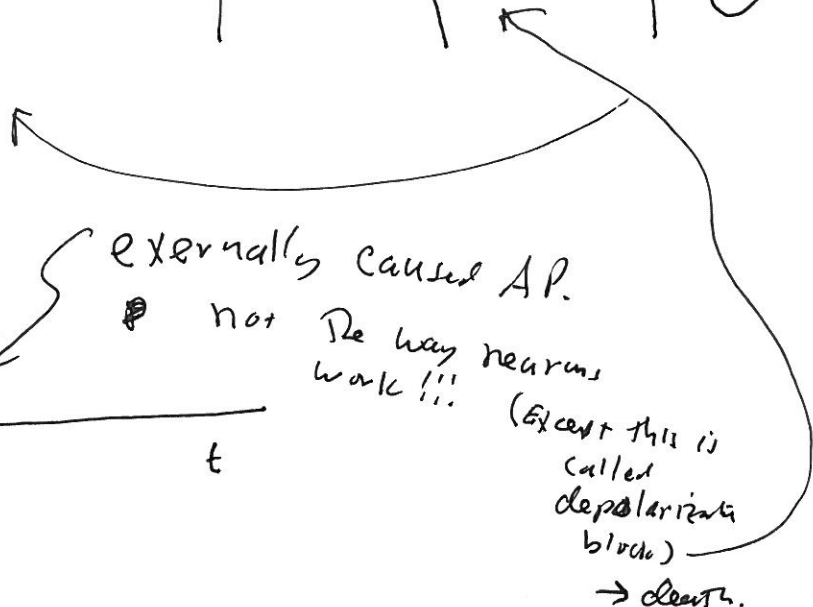 exernally caused AP.
not The way neurons
work!!!
(Except this is
called
depolarization
block)
→ death.
t